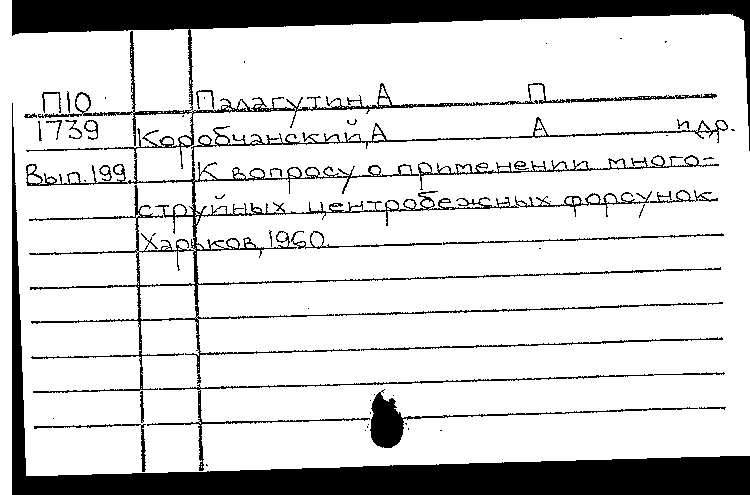 П10 Палагутин, А П
1739 Коробчанский, А А и др.
Вып. 199 К вопросу о применении много-
струйных центробежных форсунок
Харьков, 1960.